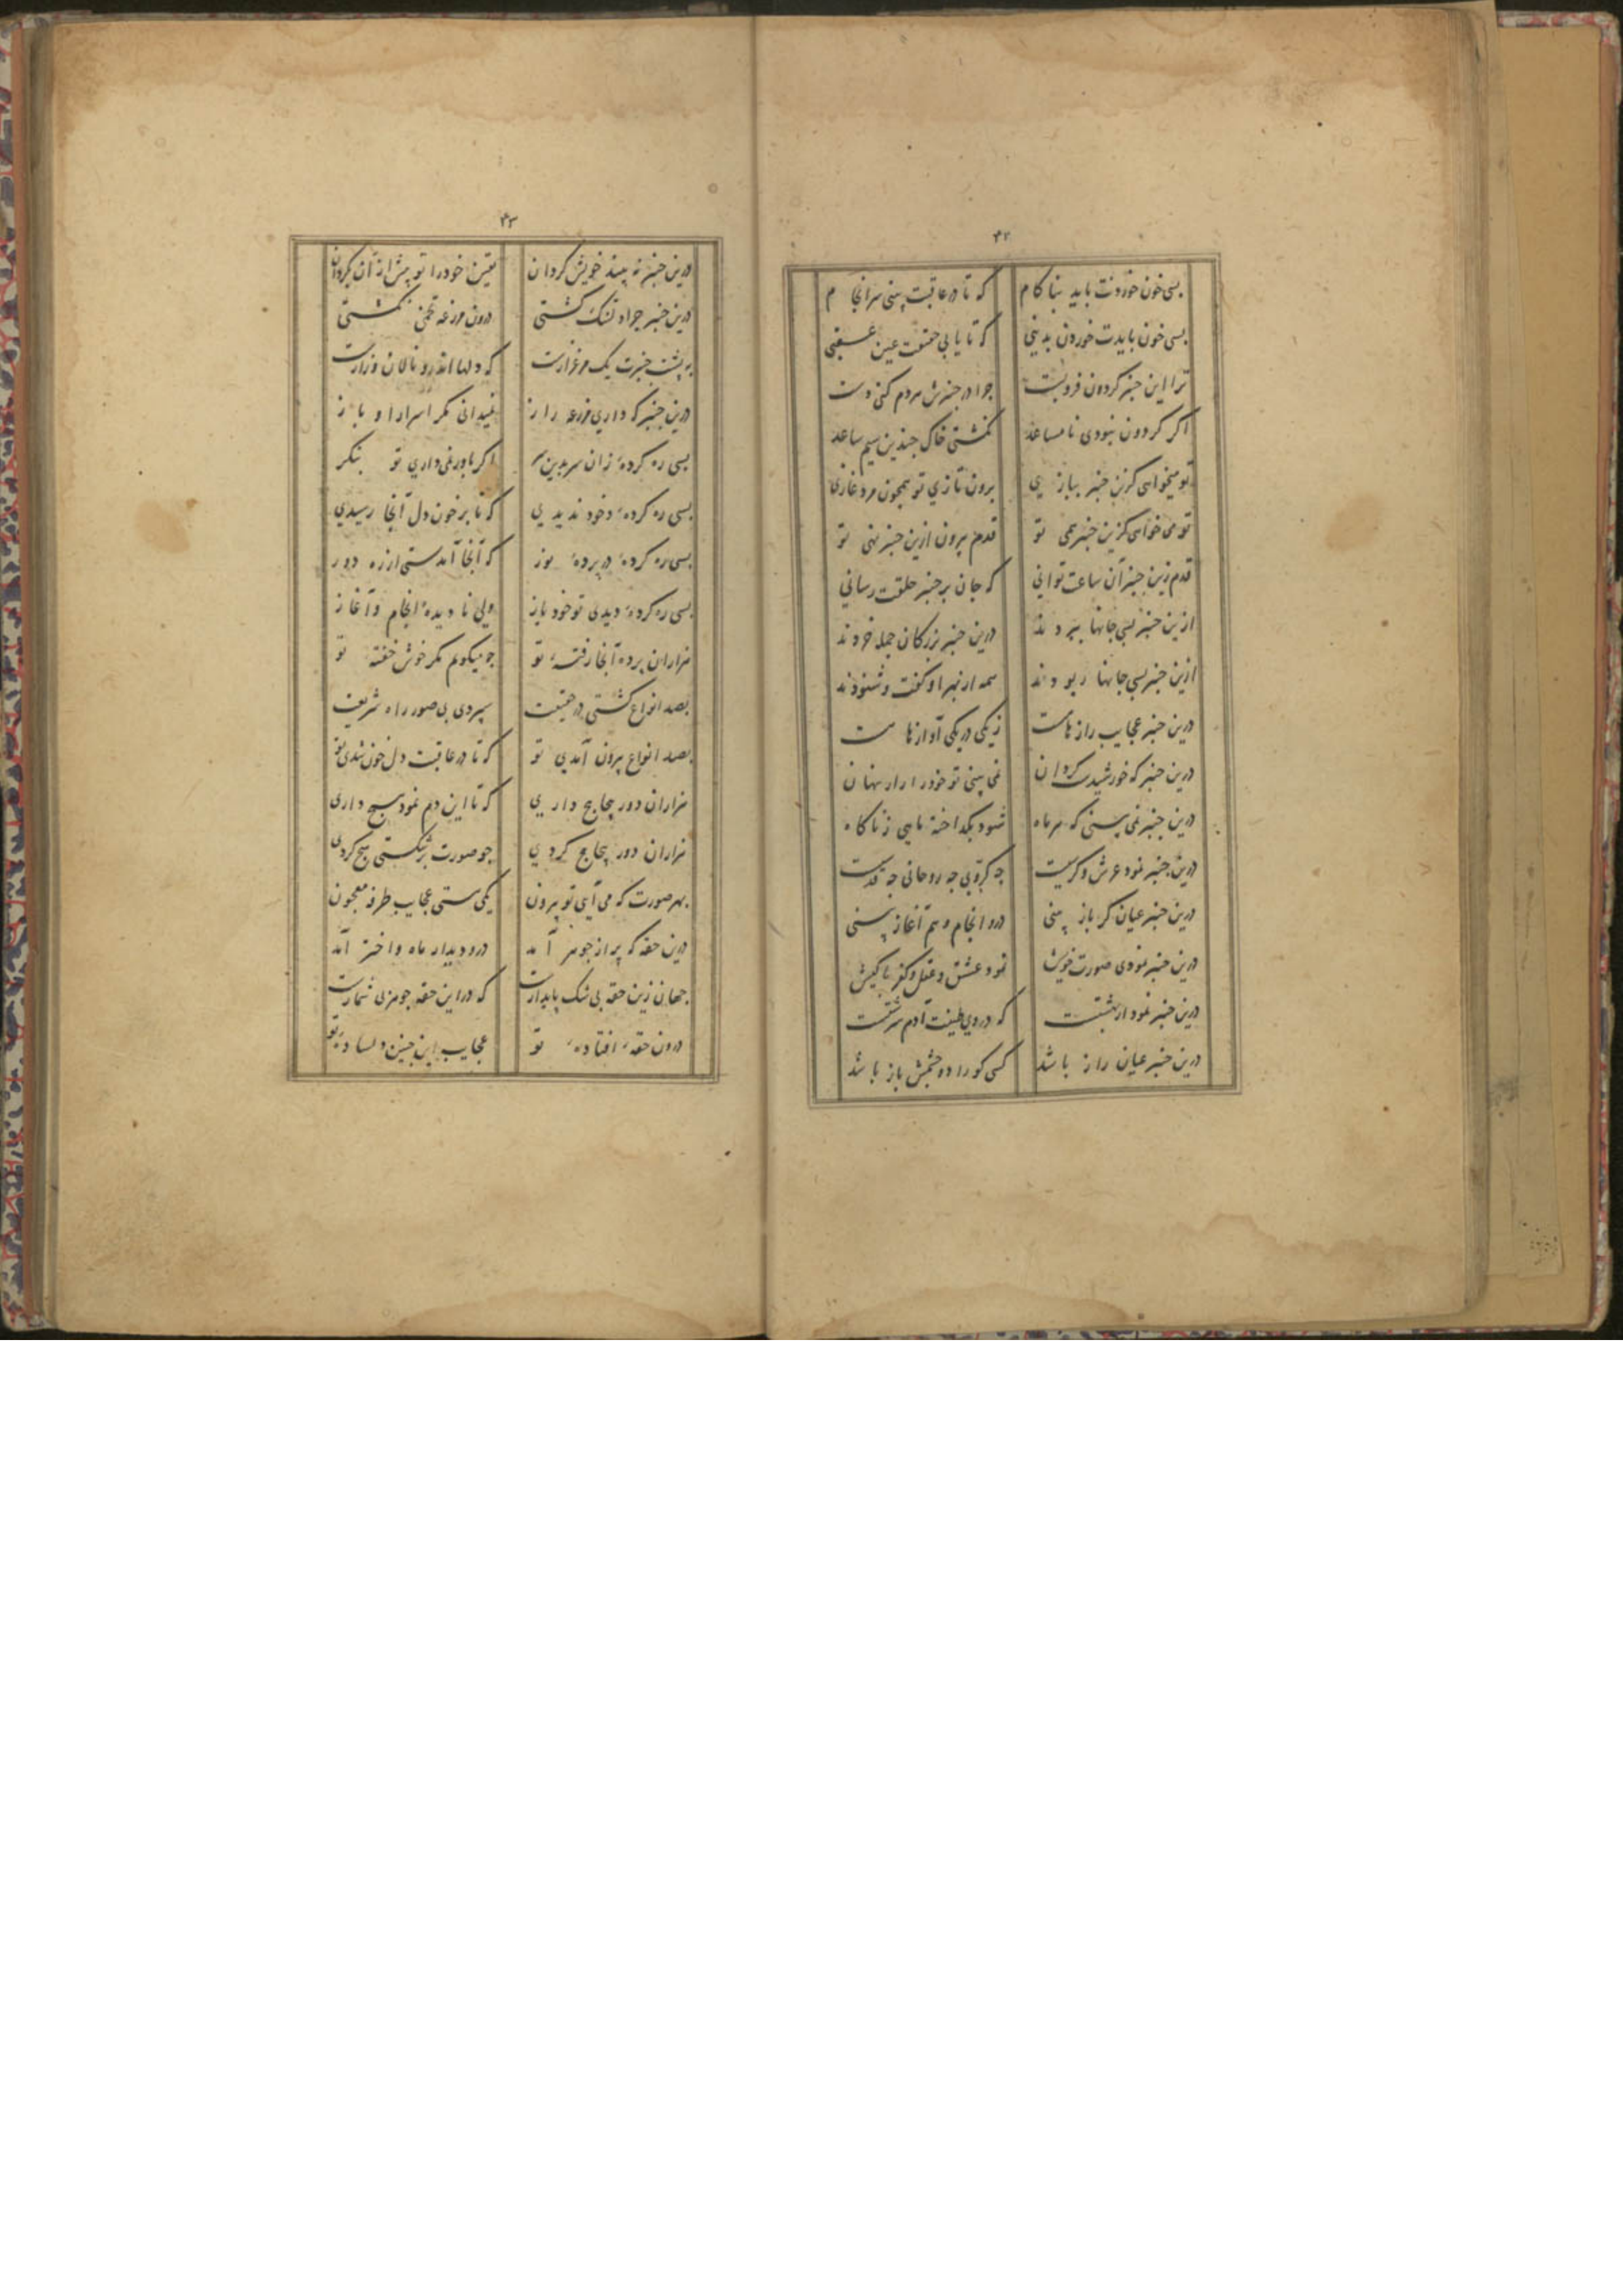 ۴۲
بسی خون خوردنت باید بناکام که تا در عاقبت بینی سرانجام
بسی خون بایدت خوردن بدینی که تا یابی حقیقت عین
ترا این چنبر کردون فروبست چرا در چنبرش مردم کنی دست
اکر کردون نبودی نامساعد نکشتی خاک چندین سیم ساعد
تو میخواهی کزین چنبر ببازی برون تازی تو همچون مرد غازی
تو می خواهی کزین چنبر جهی تو قدم بیرون ازین چنبر نهی تو
قدم زین چنبر آن ساعت توانی که جان بر چنبر حلقت رسانی
ازین چنبر بسی جانها ببردند درین چنبر بزرکان جمله خردند
ازین چنبر بسی جانها ربودند همه از بهر او کفت و شنودند
درین چنبر عجایب رازهاست ز یکی در یکی آوازهاست
درین چنبر که خورشیدست کردان نمی بینی تو خود را زار پنهان
درین چنبر نمی بینی که هر ماه شود بکداخته ماهی ز ناکاه
درین چنبر نمود عرش و کرسیست چه کروبی چه روحانی چه قدسیست
درین چنبر عیان کر باز بینی درو انجام و هم آغاز بینی
درین چنبر نمودی صورت خویش نمود عشق و عقل و کفر با کیش
درین چنبر نمود از بهشتست که در وی طینت آدم سرشتست
درین چنبر عیان راز باشد کسی کو را دو چشمش باز باشد
۴۳
درین چنبر نه بیند خویش کردان یقین خود را تو پیش از آن بکردان
درین چنبر چرا دلتنک کشتی درون مزرعه تخمی نکشتی
به پشت چنبرت یک مرغزارست که دلها اندرو نالان و زارست
درین چنبر که داری مزرعه راز نمیدانی مکر اسرار او باز
بسی ره کرده‌ٔ زان سر بدین سر اکر باور نمی داری تو بنکر
بسی ره کرده‌ٔ و خود ندیدی که تا بر خون دل آنجا رسیدی
بسی ره کرده‌ٔ در پرده‌ٔ نور که آنجا آمدستی از ره دور
بسی ره کرده‌ٔ دیدی تو خود باز ولی نادیده‌ٔ انجام و آغاز
هزاران پرده آنجا رفته‌ٔ تو چو میکویم مکر خوش خفته‌ٔ تو
بصد انواع کشتی در حقیقت سپردی بی صور راه شریعت
بصد انواع بیرون آمدی تو که تا در عاقبت دل خون شدی تو
هزاران دور پیچاپیچ داری که تا این دم نمود هیچ داری
هزاران دور پیچاپیچ کردی چو صورت بر شکستی هیچ کردی
بهر صورت که می آیی تو بیرون یکی هستی عجایب طرفه معجون
درین حقه که پر از جوهر آمد درو دیدار ماه و اختر آمد
جهان زین حقه بی شک پایدارست که در این حقه جوهر بی شمارست
درون حقه‌ٔ افتاده‌ٔ تو عجایب این چنین دلساده‌ٔ تو